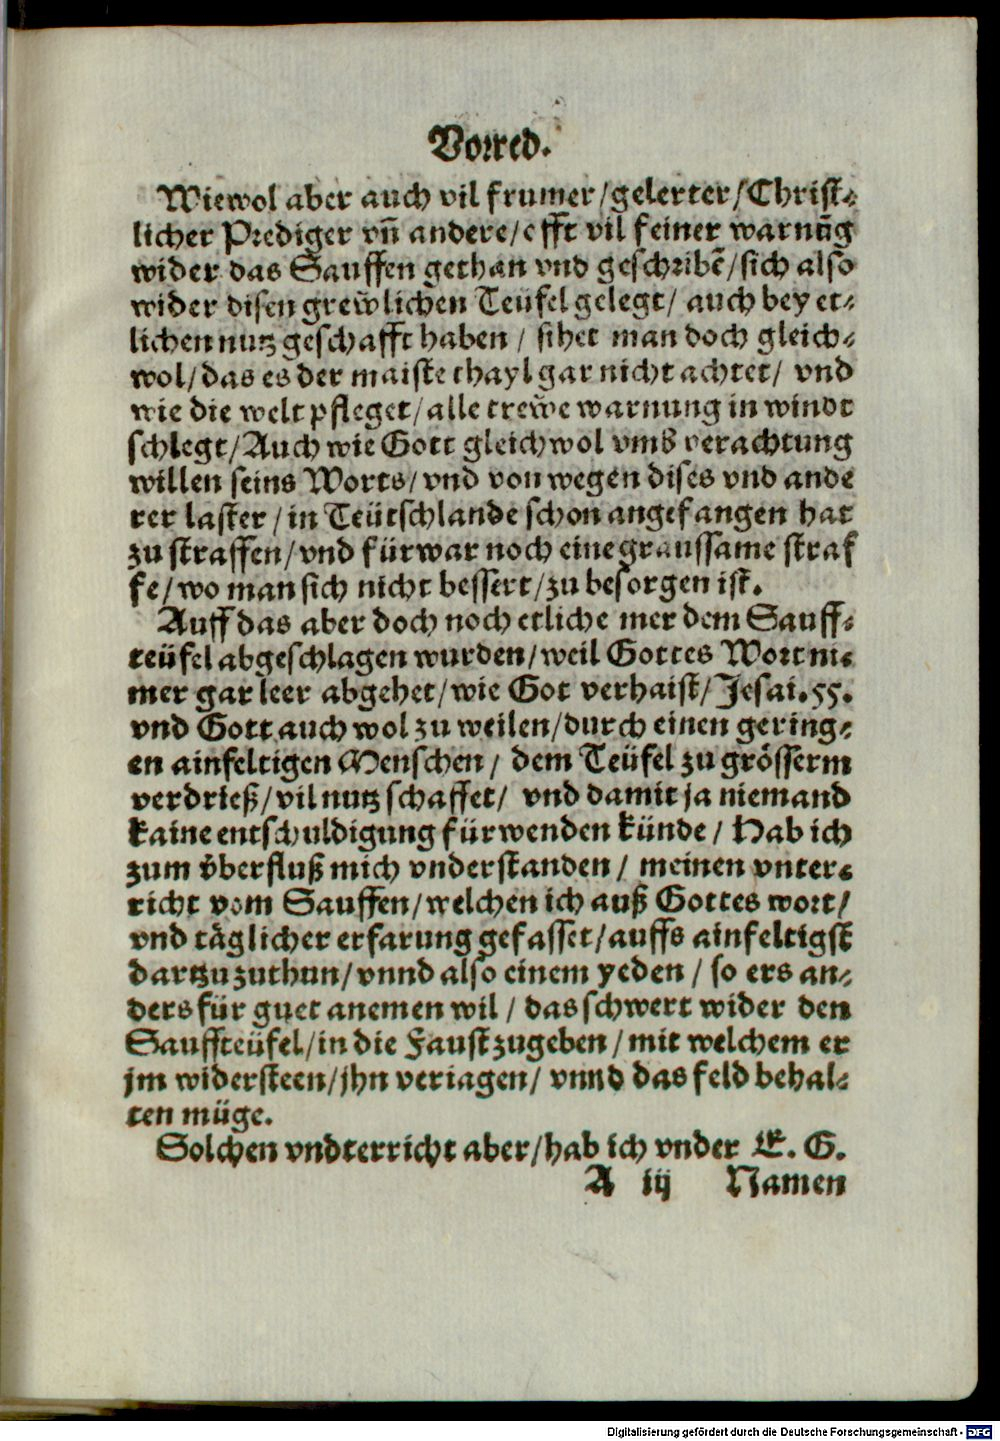 Vorred.
Wiewol aber auch vil frumer/gelerter/Christ-
licher Prediger vñ andere/offt vil feiner warnũg
wider das Sauffen gethan vnd geschribẽ/sich also
wider disen grewlichen Teüfel gelegt/ auch bey et-
lichen nutz geschafft haben / sihet man doch gleich-
wol/das es der maiste thayl gar nicht achtet/ vnd
wie die welt pfleget/alle trewe warnung in windt
schlegt/Auch wie Gott gleichwol vmb verachtung
willen seins Worts/vnd von wegen dises vnd ande
rer laster/in Teütschlande schon angefangen hat
zu straffen/vnd fürwar noch eine graussame straf
fe/wo man sich nicht bessert/zu besorgen ist.
Auff das aber doch noch etliche mer dem Sauff-
teüfel abgeschlagen wurden/weil Gottes Wort ni-
mer gar leer abgehet/wie Got verhaist/Jesai.55.
vnd Gott auch wol zu weilen/durch einen gering-
en ainfeltigen Menschen/ dem Teüfel zu grösserm
verdrieß/vil nutz schaffet/ vnd damit ja niemand
kaine entschuldigung fürwenden künde/ Hab ich
zum vͤberfluß mich vnderstanden/ meinen vnter-
richt vom Sauffen/welchen ich auß Gottes wort/
vnd täglicher erfarung gefasset/auffs ainfeltigst
dartzu zuthun/vnnd also einem yeden/ so ers an-
ders für guet anemen wil/ das schwert wider den
Sauffteüfel/in die Faust zugeben/mit welchem er
jm widersteen/jhn veriagen/ vnnd das feld behal-
ten müge.
Solchen vndterricht aber/hab ich vnder E. G.
A iij Namen
Digitalisierung gefördert durch die Deutsche Forschungsgemeinschaft - DFG